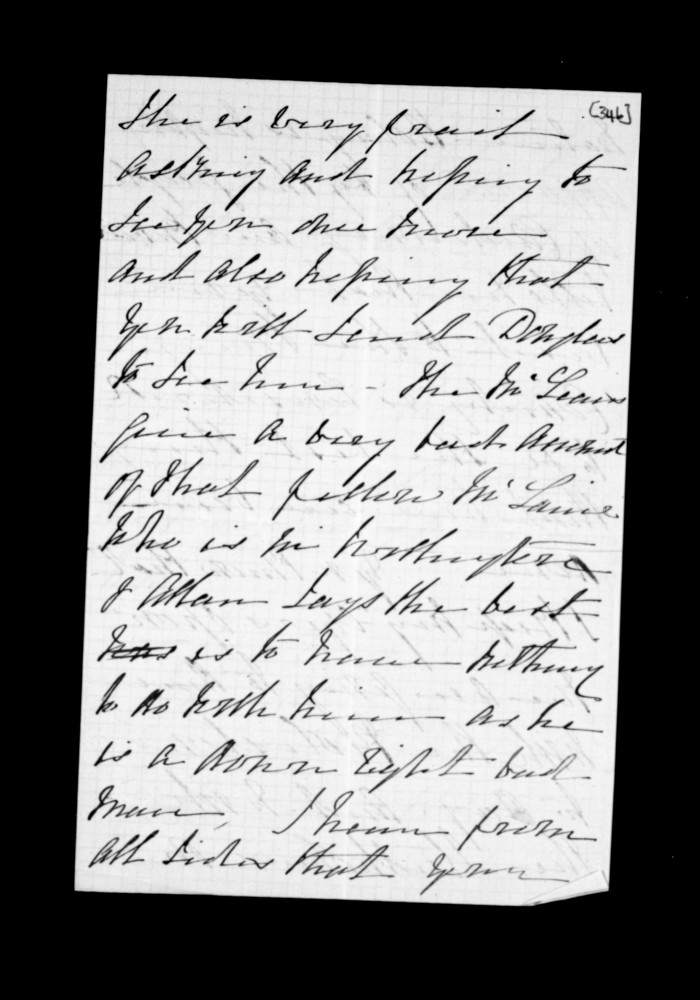 [346]
She is very frail
asking and hoping to
see you once more
and also hoping that
you will send Douglas
to see him - The McLeans
give a very bad account
of that fellow McLaine
who is in Wellington
J Allan says the best
was is to have nothing
to do with him as he
is a down right bad
man, I hear from
all sides that your